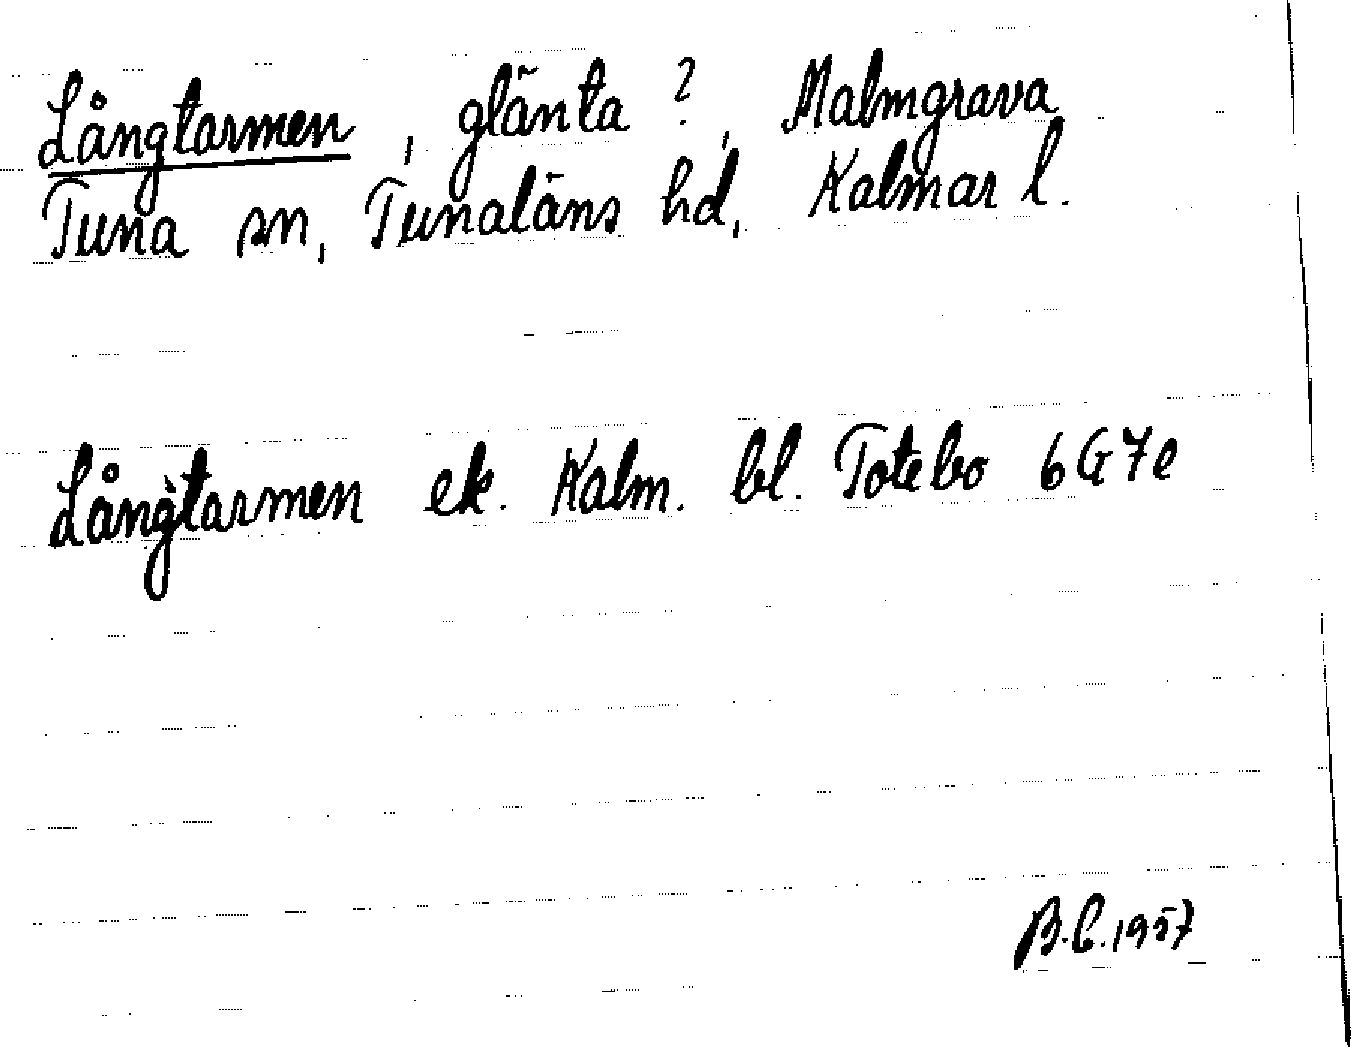 Långtarmen, glänta ?, Malmgrava
Tuna sn, Tunaläns hd, Kalmar l.
Långtarmen ek. Kalm. bl. Totebo 6G7e
B.C. 1957